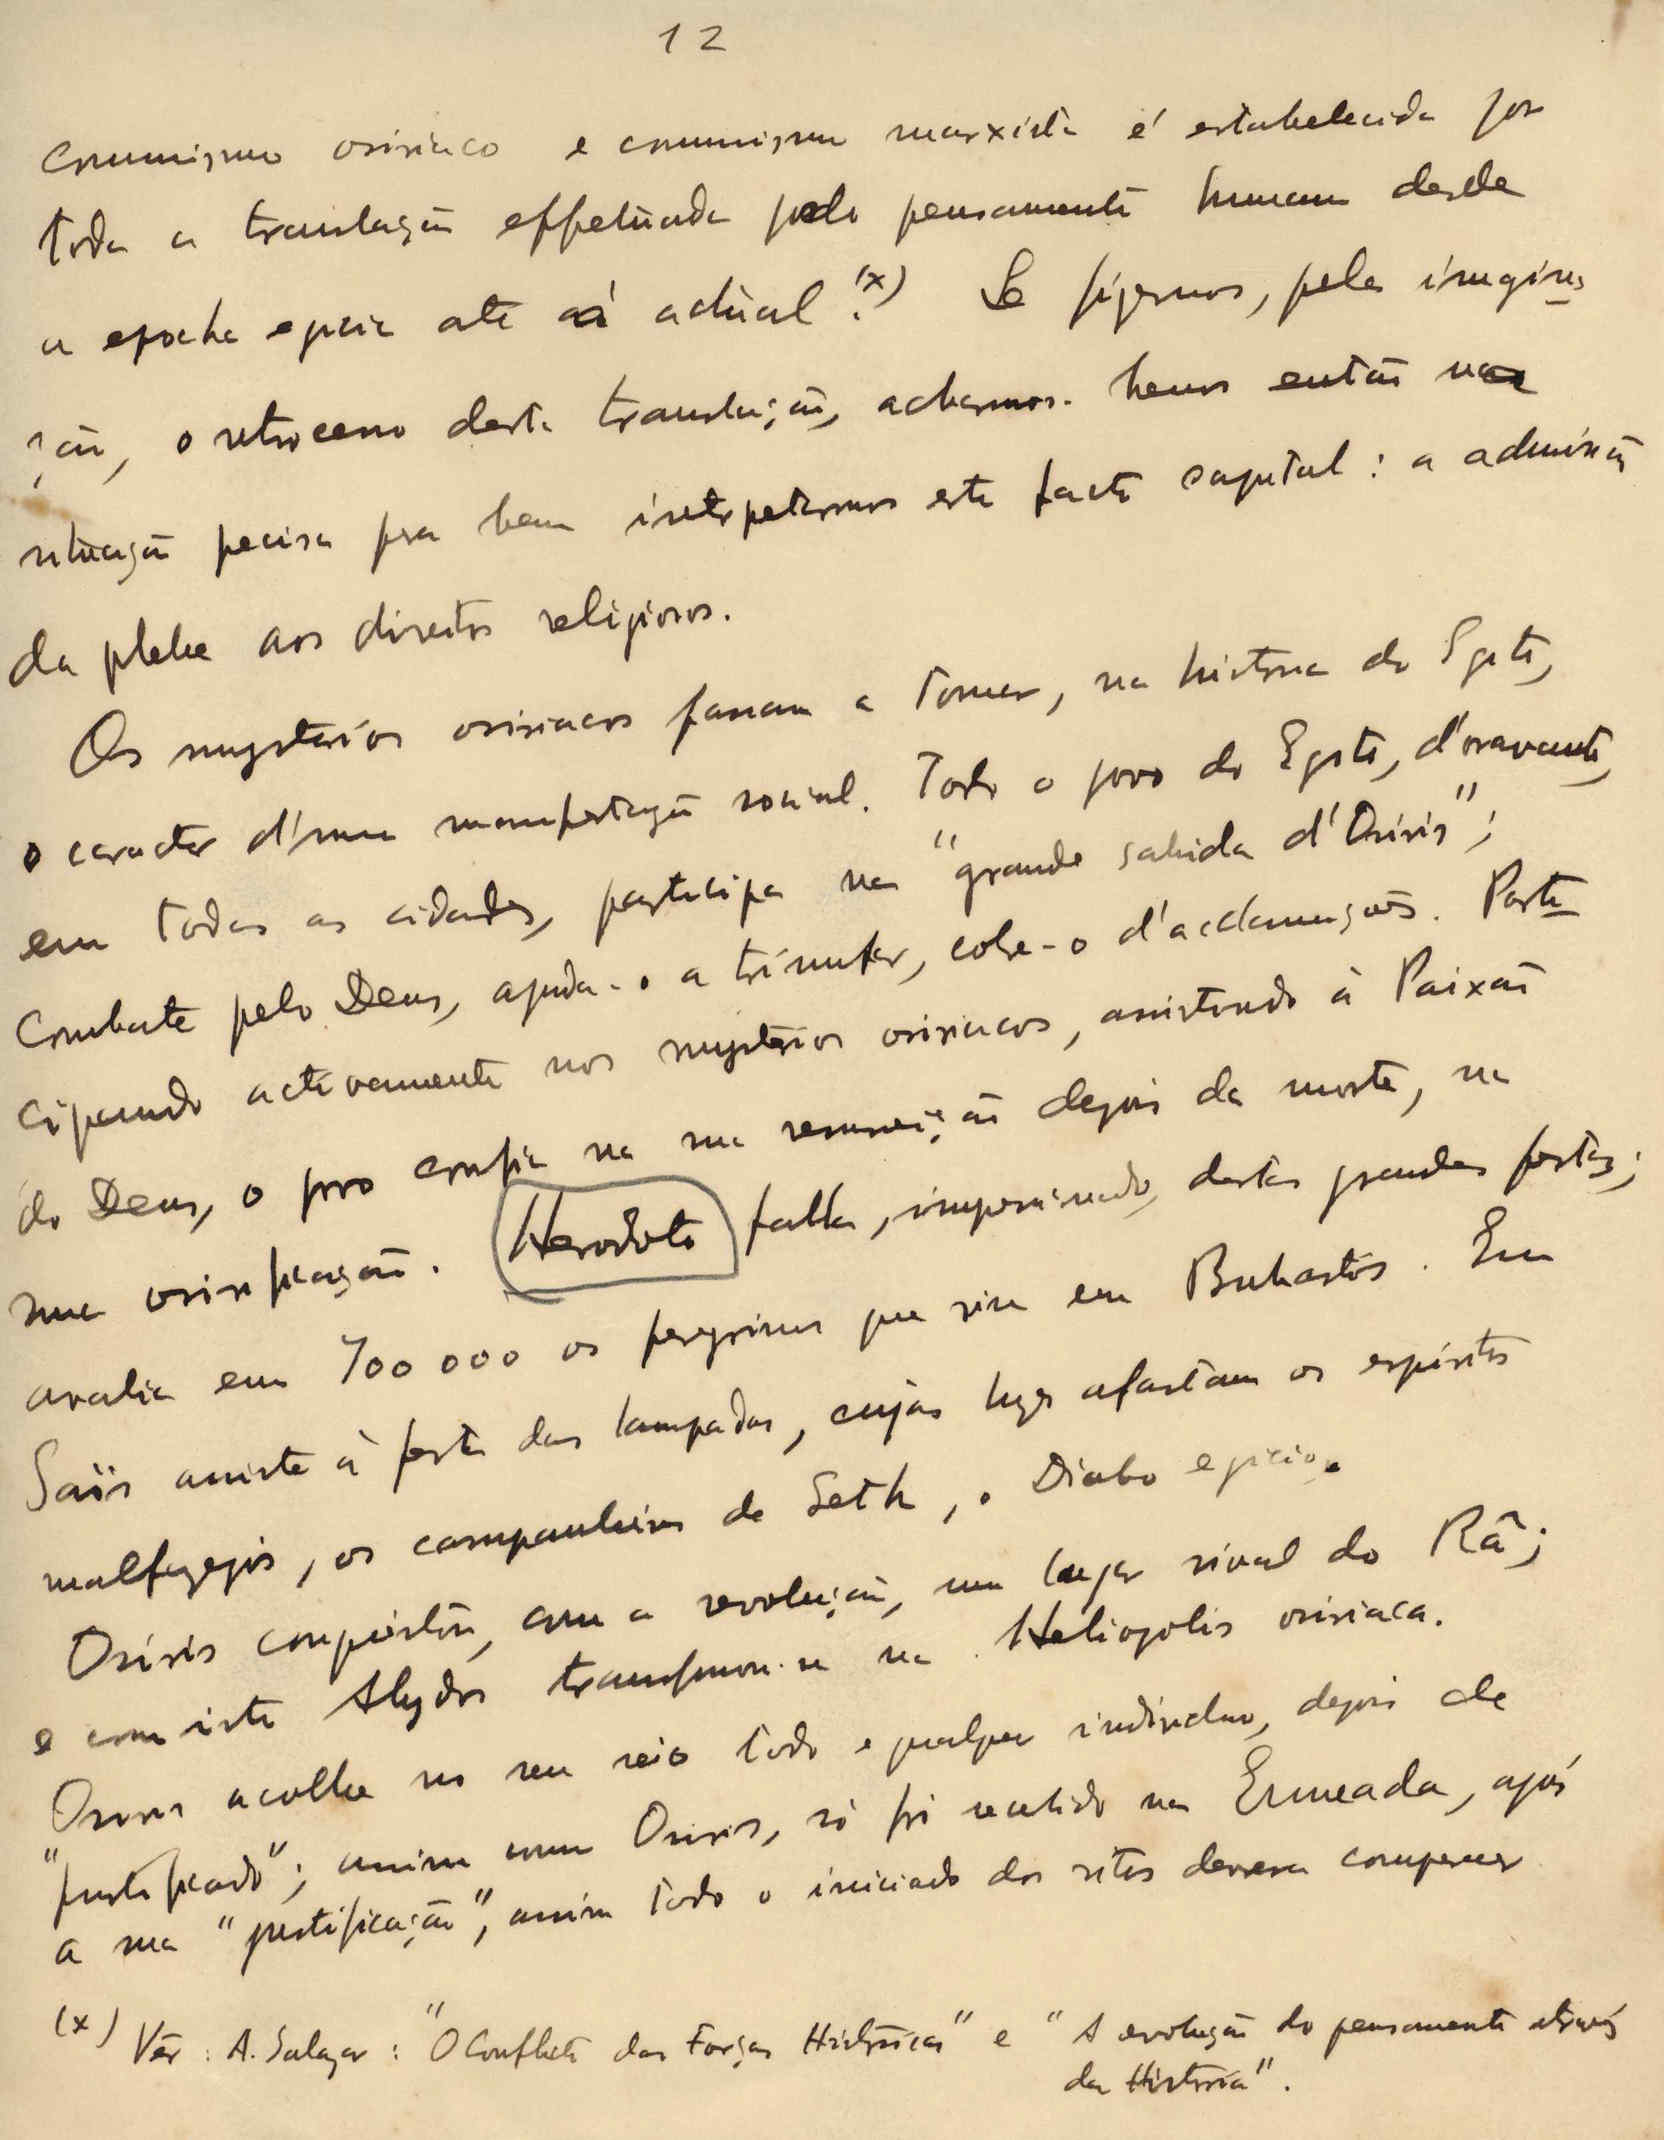 12
communismo osiriaco e communismo marxista é estabelecida por
toda a translação effetuada pelo pensamento humano desde
a epocha egicia até á actual.(x) Se fizermos, pela imagina-
ção, o retrocesso desta translação, acharmos-hemos então na
situação precisa pra bem interpetarmos este facto capital: a admissão
da plebe aos direitos religiosos.
Os mysterios osiriacos passam a tomar, na historia do Egito,
o caracter d'uma manifestação social. Todo o povo do Egito, d'oravante,
em todas as cidades, participa na "grande sahida d'Osiris";
combate pelo Deus, ajuda-o a triunfar, cobre-o d'acclamações. Parti-
cipando activamente nos mysterios osiriacos, assistindo à Paixão
do Deus, o povo confia na sua ressurreição depois da morte, na
sua osirificação. Herodoto falla, impressionado, destas grandes festas;
avalia em 700 000 os peregrinos que viu em Bubastis. Em
Saïs assiste à festa das lampadas, cujas luzes afastam os espiritos
malfazejos, os companheiros de Seth, o Diabo egicio.
Osiris conquistou, com a revolução, um lugar rival do Râ;
e com isto Abydos transformou-se na Heliopolis osiriaca.
Osiris acolhe no seu seio todo e qualquer individuo, depois de
"justificado"; assim como Osiris, só foi recebido na Enneada, após
a sua "justificação", assim todo o iniciado dos ritos deverá comparecer
(x) Vêr: A. Salazar: "O Conflito das Forças Históricas" e "A evolução do pensamento através
da Historia".